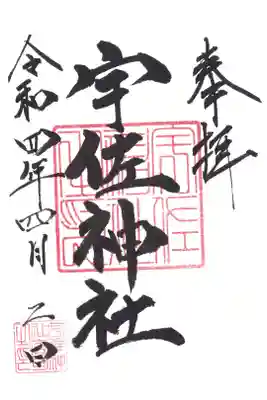 奉拝
宇佐神社
令和四年四月二日